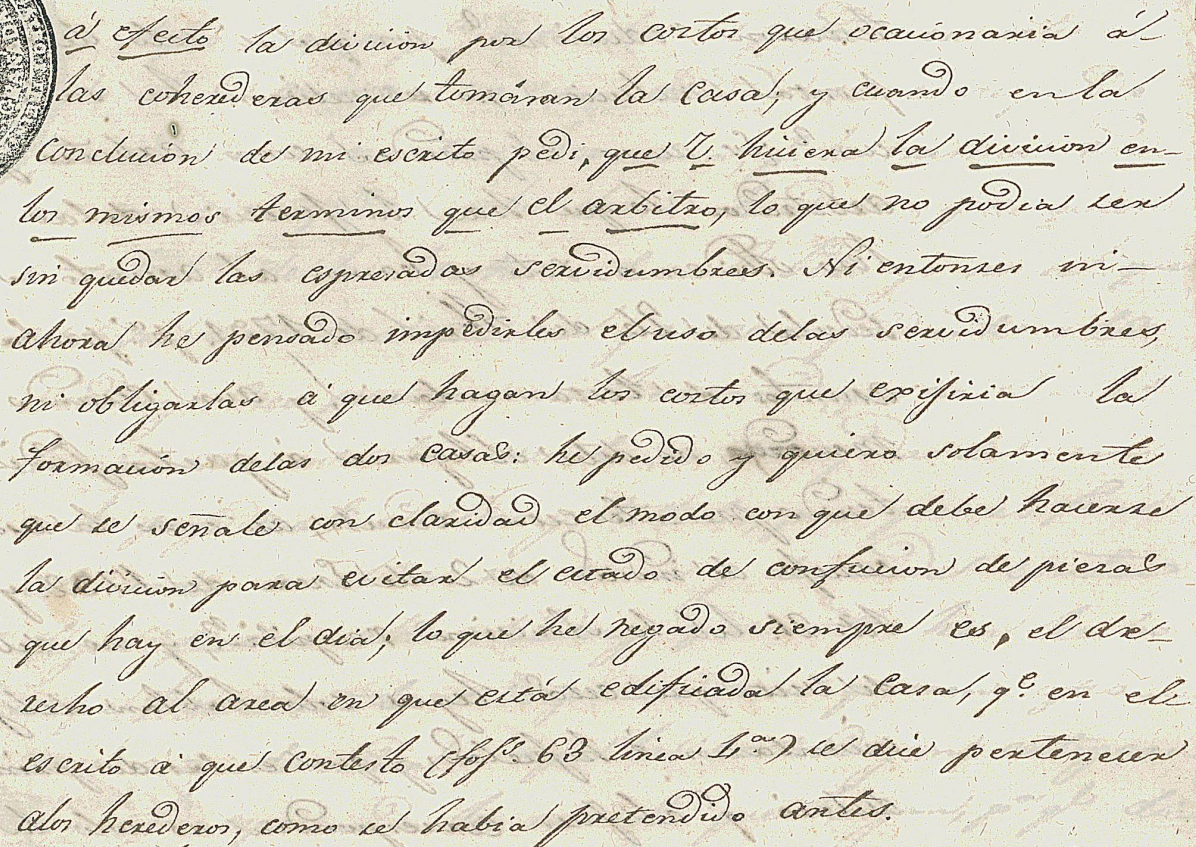 á efecto la divicion por los costos que ocacionaria á
las coherederas que tomáran la casa; y cuando en la
conclucion de mi escrito pedi, que V. hiciera la divicion en
los mismos terminos que el arbitro, lo que no podia ser
sin quedar las espresadas servidumbres. Ni entonses ni
ahora he pensado impedirles el uso delas servidumbres,
ni obligarlas á que hagan los costos que exijiria la
formacion delas dos casas: he pedido y quiero solamente
que se señale con claridad el modo con que debe hacerse
la divicion para evitar el estado de confucion de piezas
que hay en el dia; lo que he negado siempre es, el dre-
recho al area en que está edificada la casa, q.e en el
escrito á que contesto (foj.s 63 linea 4.a) se dice pertenecer
alos herederos, como se habia pretendido antes.